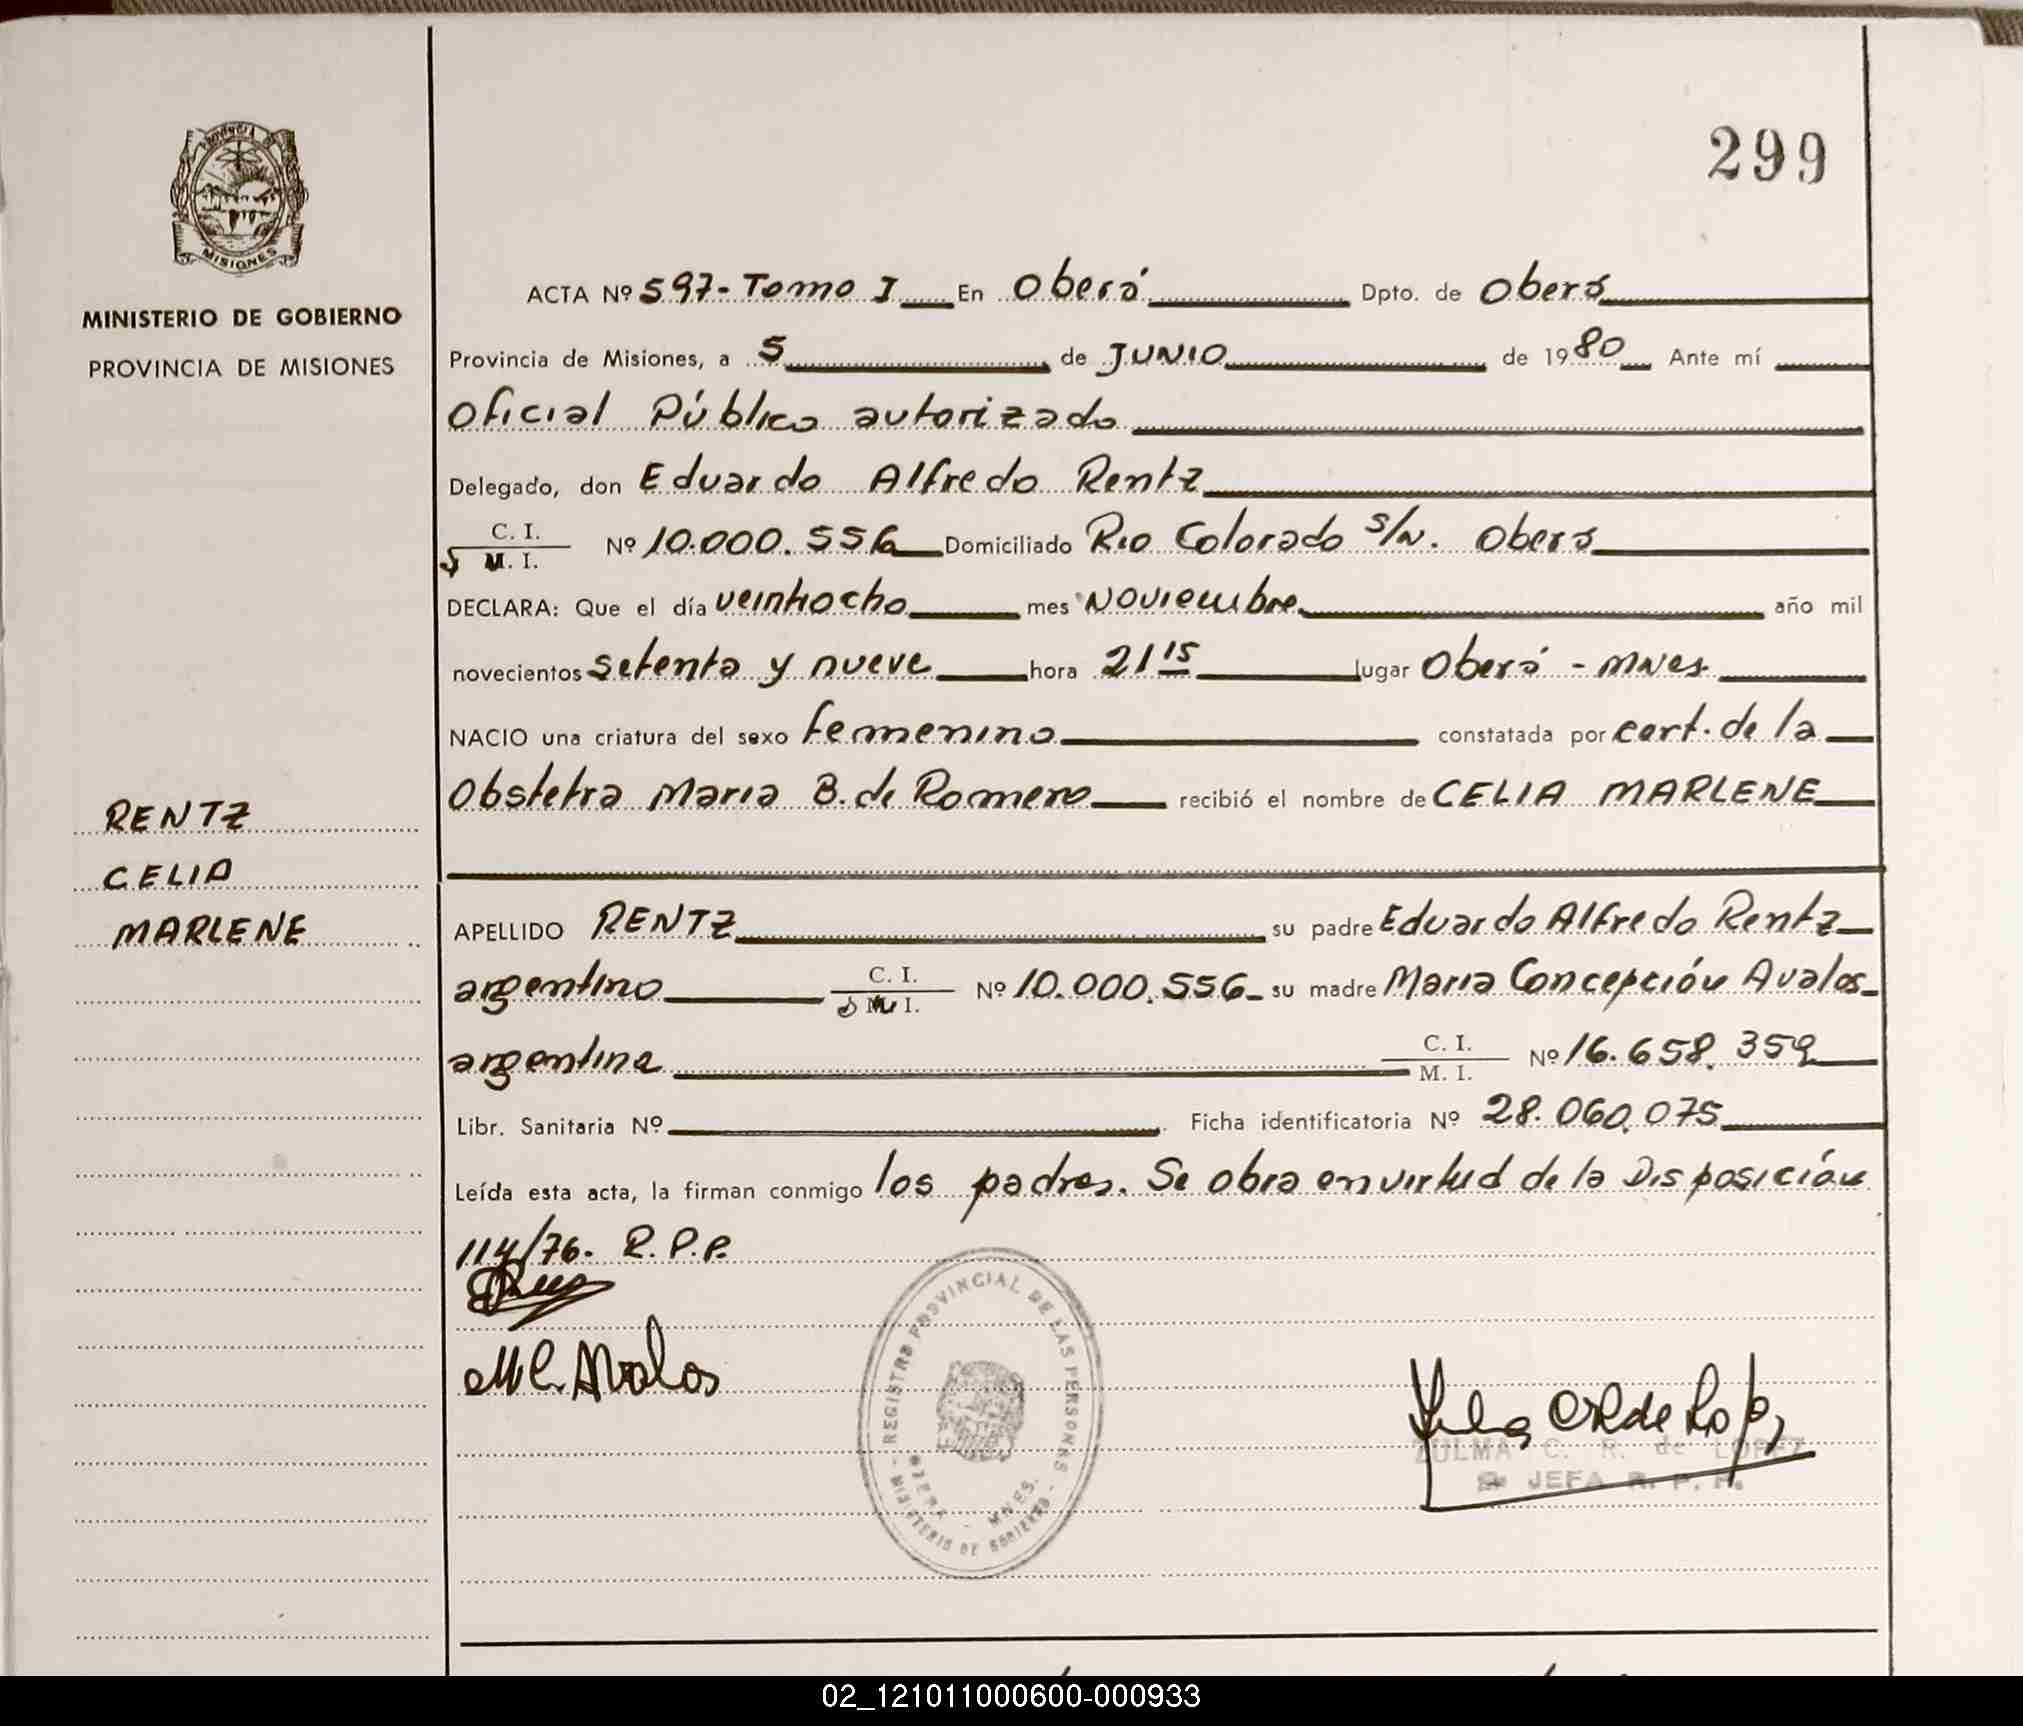 299
PROVINCIA DE
MISIONES
MINISTERIO DE GOBIERNO
PROVINCIA DE MISIONES
RENTZ
CELIA
MARLENE
ACTA Nº 597 - Tomo I En Oberá Dpto. de Oberá
Provincia de Misiones, a 5 de JUNIO de 1980 Ante mí
Oficial Público autorizado
Delegado, don Eduardo Alfredo Rentz
C. I.
M. I. Nº 10.000.556 Domiciliado Rio Colorado s/n. Oberá
DECLARA: Que el día veintiocho mes Noviembre año mil
novecientos setenta y nueve hora 21 15 lugar Oberá - Mnes.
NACIO una criatura del sexo femenino constatada por cert. de la
Obstetra Maria B. de Romero recibió el nombre de CELIA MARLENE
APELLIDO RENTZ su padre Eduardo Alfredo Rentz
argentino C. I. M. I. Nº 10.000.556 - su madre Maria Concepción Avalos -
argentina C. I. M. I. Nº 16.658.359
Libr. Sanitaria Nº Ficha identificatoria Nº 28.060.075
Leída esta acta, la firman conmigo los padres. Se obra en virtud de la Disposición
114/76. R.P.P.
M C. Avalos
REGISTRO PROVINCIAL DE LAS PERSONAS - MINISTERIO DE GOBIERNO -
OBERA - MNES.
Zulma C R de Lopez
ZULMA C. R. de LOPEZ
JEFA R. P. P.
02_121011000600-000933